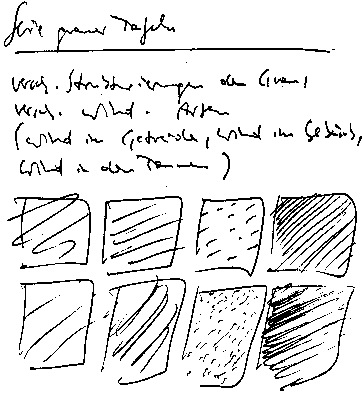 Serie grauer Tafeln
versch. Strukturierungen des Graus,
versch. Wind-Arten
(Wind im Getreide, Wind im Gebüsch,
Wind in den Tannen)